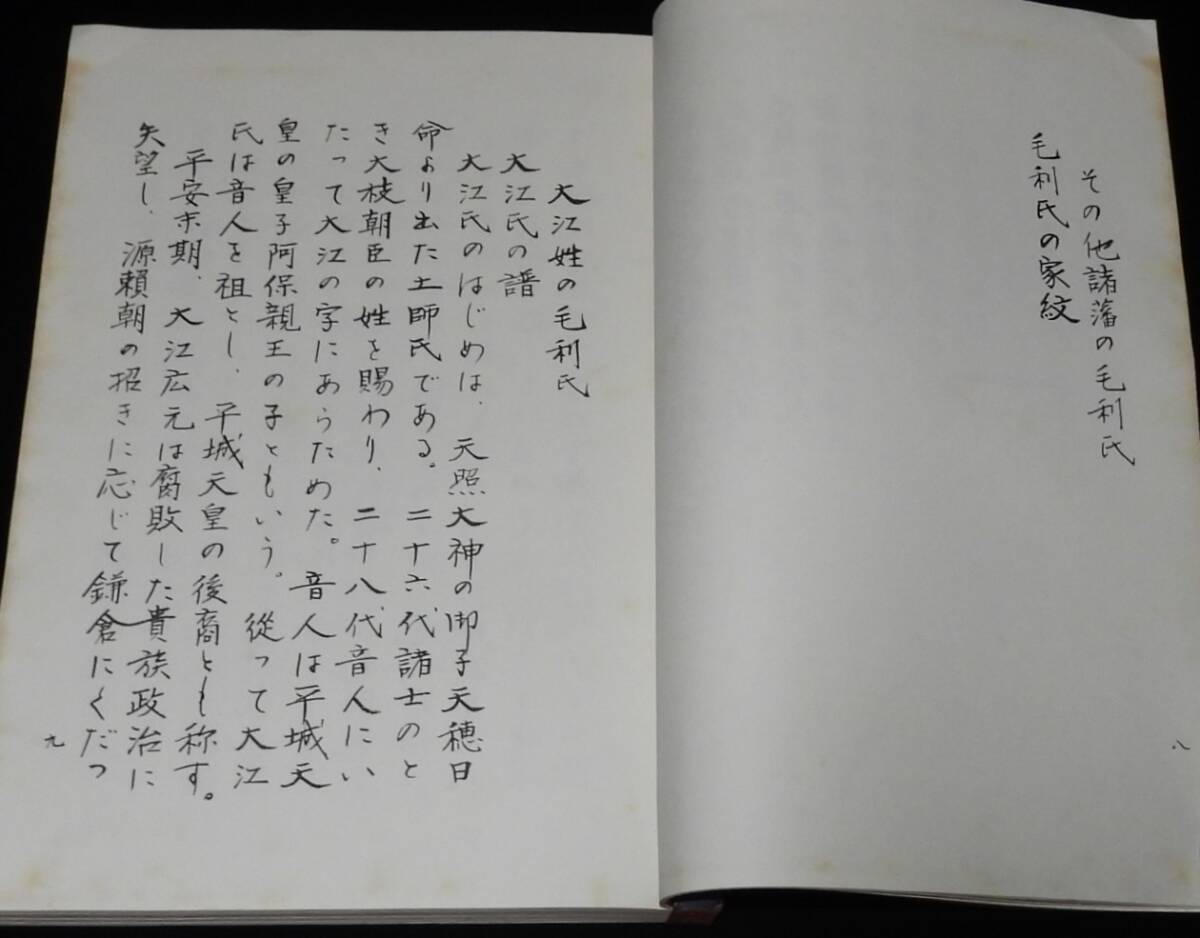 その他諸藩の毛利氏
毛利氏の家紋
八
大江姓の毛利氏
大江氏の譜
大江氏のはじめは、天照大神の御子天穂日
命より出た土師氏である。二十六代諸士のと
き大枝朝臣の姓を賜わり、二十八代音人にい
たって大江の字にあらためた。音人は平城天
皇の皇子阿保親王の子ともいう。従って大江
氏は音人を祖とし、平城天皇の後裔とも称す。
平安末期、大江広元は腐敗した貴族政治に
失望し、源頼朝の招きに応じて鎌倉にくだつ
九